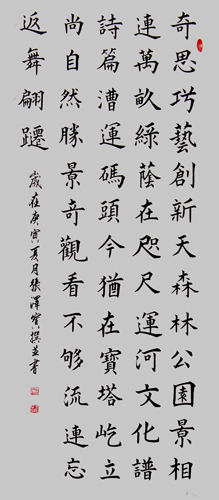 奇思巧藝創新天森林公園景相
連萬畝綠蔭在咫尺運河文化譜
詩篇漕運碼頭今猶在寶塔屹立
尚自然勝景奇觀看不够流連忘
返舞翩躚
歲在庚寅夏月張澤寶撰並書